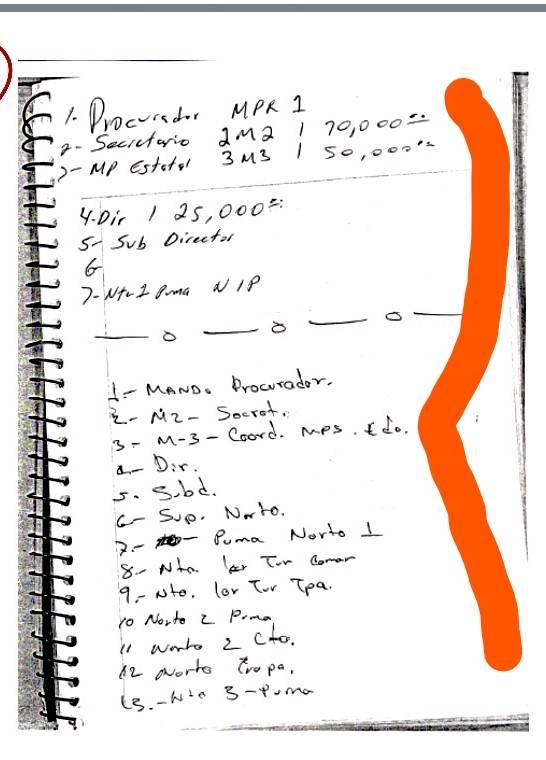 1- Procurador MPR 1
2- Secretario 2M2 1 70,000
3- MP Estatal 3M3 1 50,000
4. Dir 1 25,000
5- Sub Director
6
7- Nte 1 Puma N/P
1- MANDO Procurador.
2- M2- Secret.
3- M-3- Coord. MPS. Edo.
4- Dir.
5. Subd.
6- Sup. Norte.
7- Puma Norte 1
8- Nte. 1er Tur Coman
9- Nto. 1er Tur Tpa.
10 Norte 2 Puma
11 Norte 2 Cto.
12 Norte Tropa.
13.- Nte 3-Puma